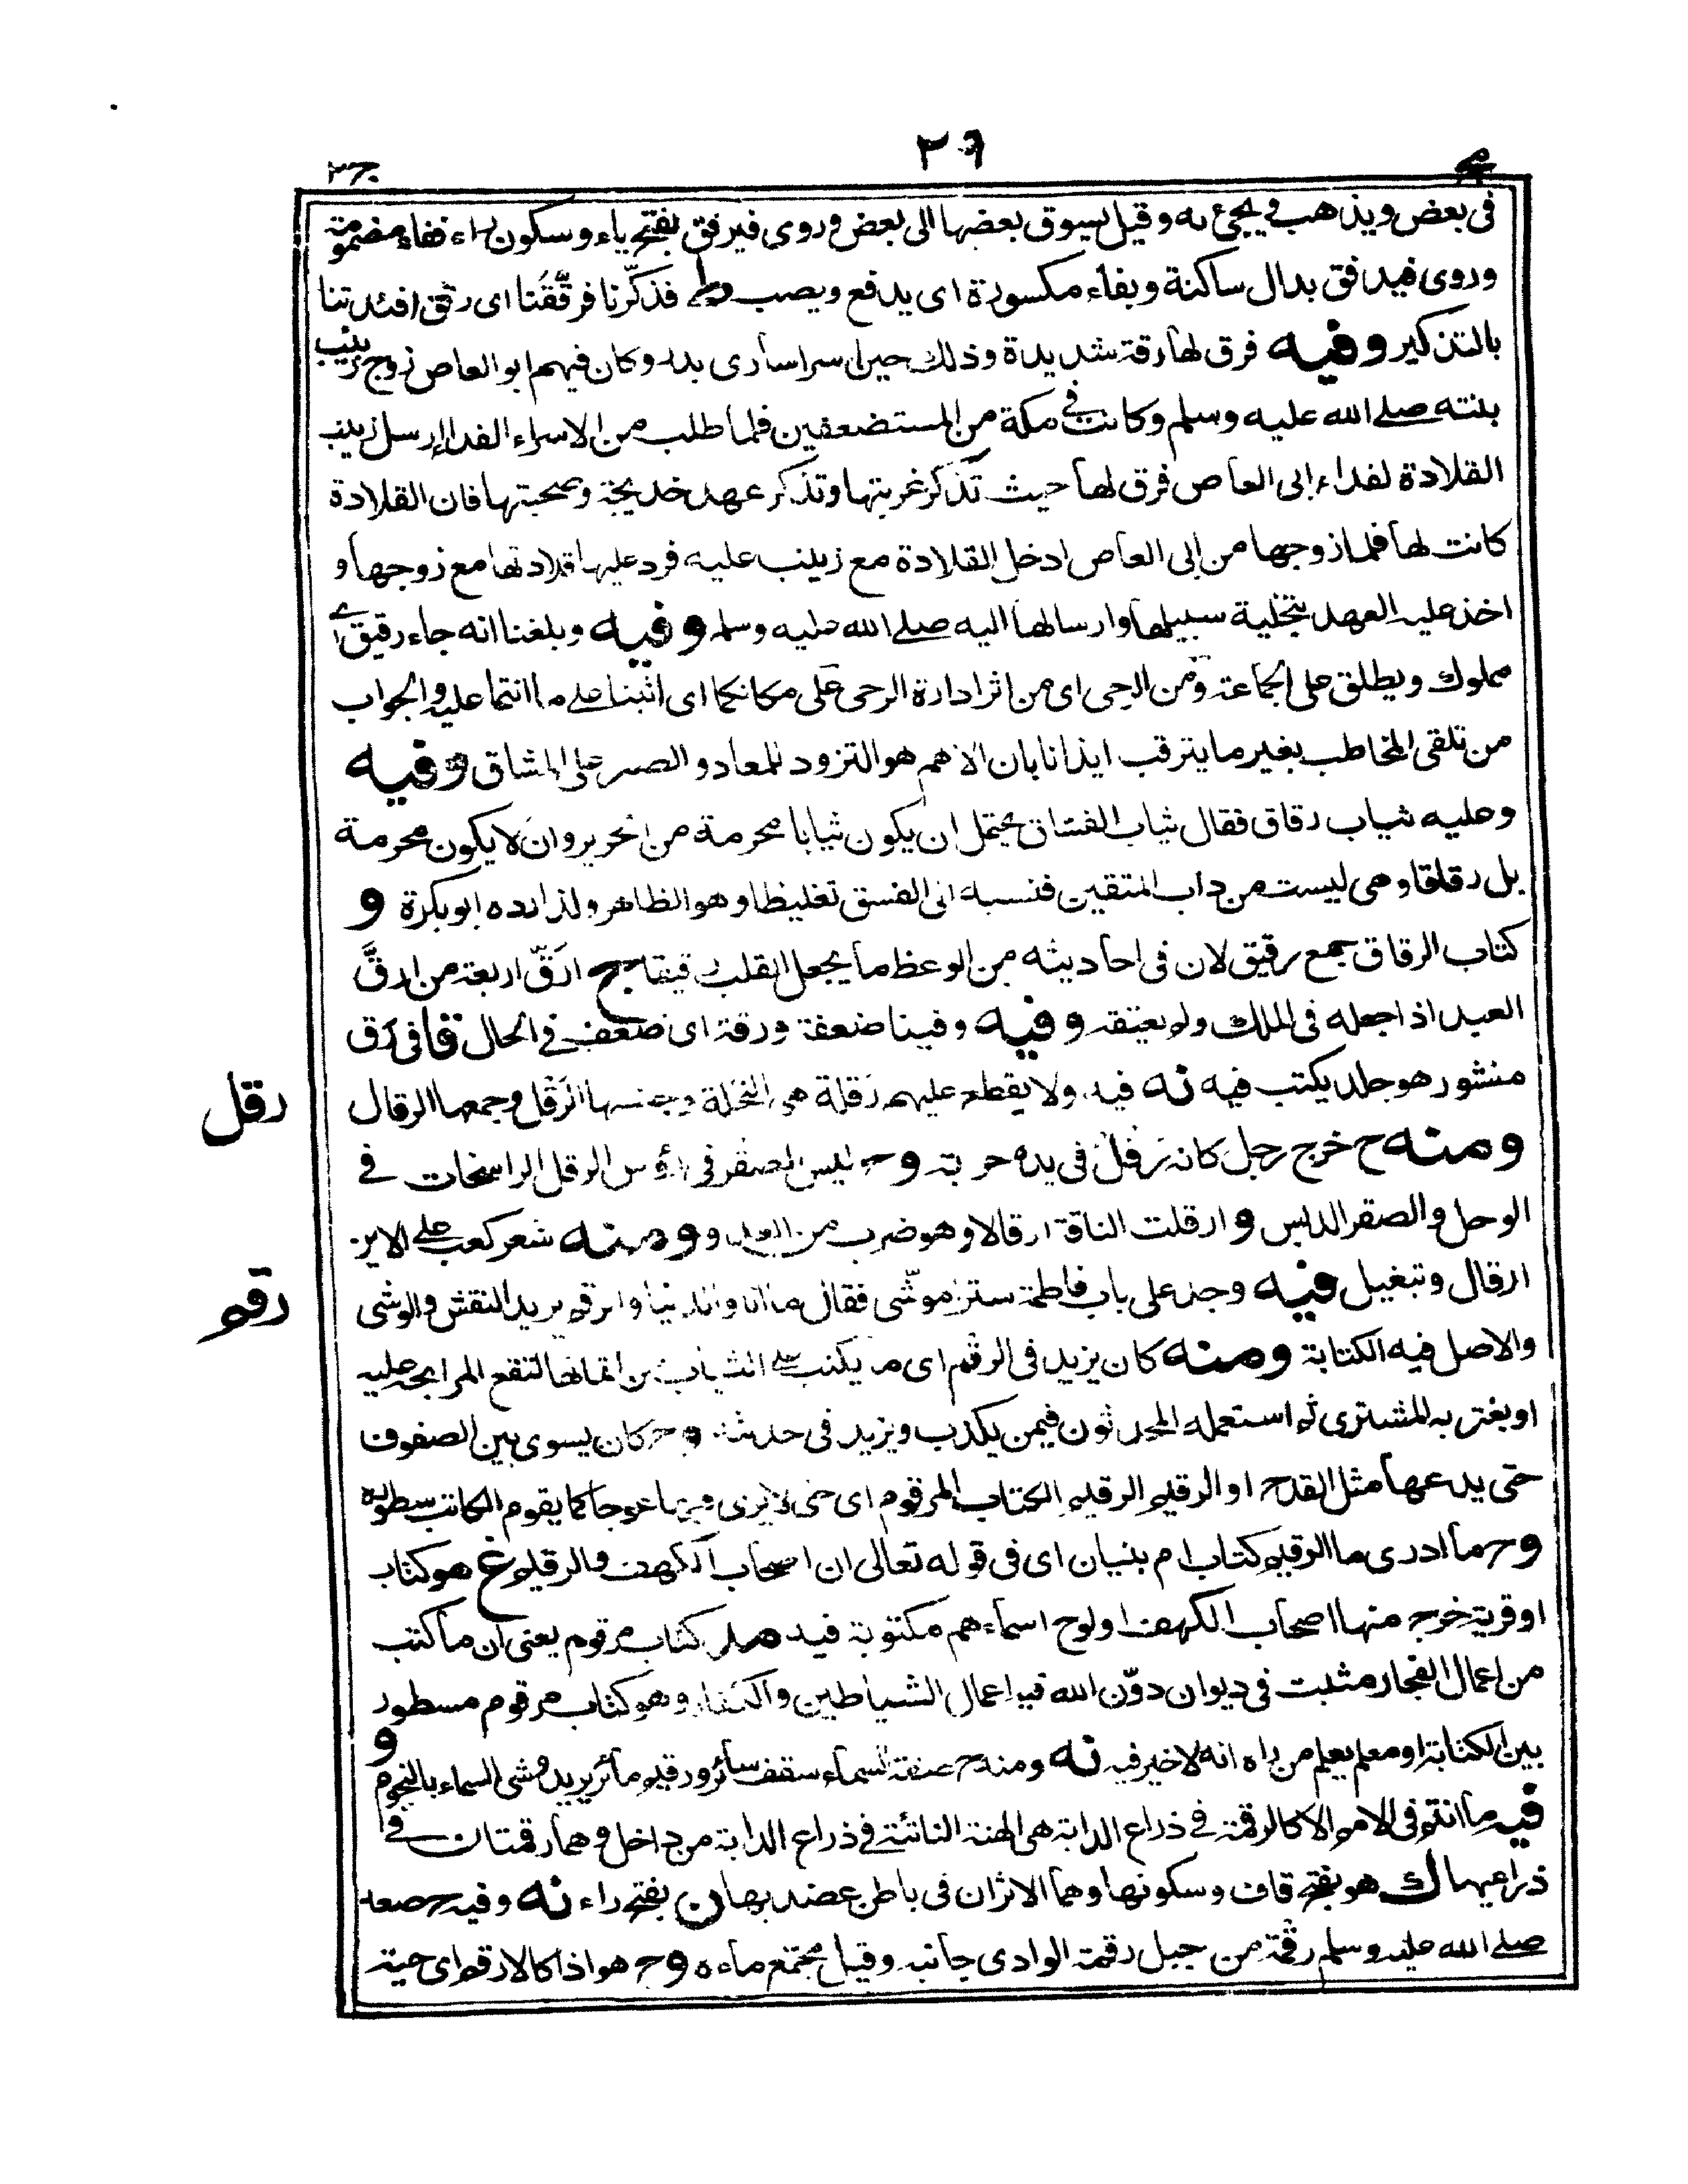 ٣٦
ج٣
فى بعض ويذهب ويجئ به وقيل يسوق بعضها الى بعض وروى فيرفق بفتح ياء وسكون راء ففاء مضمومة
وروى فيدفق بدال ساكنة وبفاء مكسورة اى يدفع ويصب ط فذكّرنا فرقّقَنا اى رقق افئدتنا
بالتذكير وفيه فرق لها رقة شديدة وذلك حين اسراسارى بدر وكان فيهم ابو العاص زوج زينب
بنته صلى الله عليه وسلم وكانت فى مكة من المستضعفين فلما طلب من الاسراء الفداء ارسل زينب
القلادة لفداء ابى العاص فرق لها حيث تذكر غربتها وتذكر عهد خديجة وصحبتها فان القلادة
كانت لها فلما زوجها من ابى العاص ادخل القلادة مع زينب عليه فرد عليها قلادتها مع زوجها و
اخذ عليه العهد بتخلية سبيلها وارسالها اليه صلى الله عليه وسلم وفيه وبلغنا انه جاء رقيق اى
مملوك ويطلق على الجماعة ومن الرحى اى من اثر ادارة الرحى على مكانكما اى اثبتا على ما انتما عليه والجواب
من تلقى المخاطب بغير ما يترقب ايذانا بان الاهم هو التزود للمعاد والصبر على المشاق وفيه
وعليه ثياب رقاق فقال ثياب الفساق يحتمل ان يكون ثيابا محرمة من الحرير وان لا يكون محرمة
بل رقاقا وهى ليست من داب المتقين فنسبه الى الفسق تغليظا وهو الظاهر ولذا رده ابو بكرة و
كتاب الرقاق جمع رقيق لان فى احاديثه من الوعظ ما يجعل القلب رقيقا ج ارَقّ اربعة من ارقَّ
العبد اذا جعله فى الملك ولم يعتقه وفيه وفينا ضعفة ورقة اى ضعف فى الحال قا فى رَق
منشور هو جلد يكتب فيه نه فيه ولا يقطع عليهم رَقلة هى النخلة وجنسها الرَقل وجمعها الرقال
ومنه ح خرج رجل كانه رقل فى يده حربة وح ليس الصقر فى رؤس الرقل الراسخات فى
الوحل والصقر الدبس و ارقلت الناقة ارقالا وهو ضرب من العدو ومنه شعر كعب على الاين
ارقال وتبغيل فيه وجد على باب فاطمة سترا موشّى فقال ما انا والدنيا والرقم يريد النقش والوشى
والاصل فيه الكتابة ومنه كان يزيد فى الرقم اى ما يكتب على الثياب من اثمانها لتقع المرابحة عليه
او يغتر به المشترى ثم استعمله المحدثون فيمن يكذب ويزيد فى حديثه وح كان يسوى بين الصفوف
حتى يدعها مثل القدح او الرقيم الرقيم الكتاب المرقوم اى حتى لا يرى فيها عوجا كما يقوم الكاتب سطوره
وح ما ادرى ما الرقيم كتاب ام بنيان اى فى قوله تعالى ان اصحاب الكهف والرقيم غ هو كتاب
او قرية خرج منها اصحاب الكهف او لوح اسماءهم مكتوبة فيه مد كتاب مرقوم يعنى ان ما كتب
من اعمال الفجار مثبت فى ديوان دوّن الله فيه اعمال الشياطين والكفار وهو كتاب مرقوم مسطور
بين الكتابة او معلم يعلم من راه انه لا خير فيه نه ومنه ح صفة السماء سقف سائر ورقيم مائر يريد وشى السماء بالنجوم و
فيه ما انتم فى الامم الا كالرقمة فى ذراع الدابة هى الهنة الناتئة فى ذراع الدابة من داخل وهما رقمتان فى
ذراعيها ك هو بفتح قاف وسكونها وهما الاثران فى باطن عضديها ن بفتح راء نه وفيه ح صعد
صلى الله عليه وسلم رقمة من جبل رقمة الوادى جانبه وقيل مجتمع ماءه وح هو اذا كالارقم اى حية
رقل
رقم